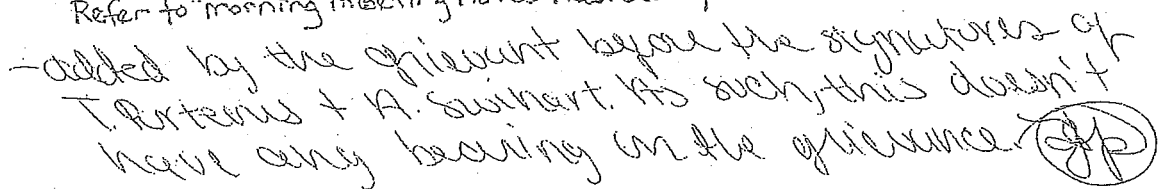 Refer to "morning meeting notes
-added by the grievant before the signatures of
T. Porteris + A. Swihart. As such, this doesn't
have any bearing in the grievance. JP